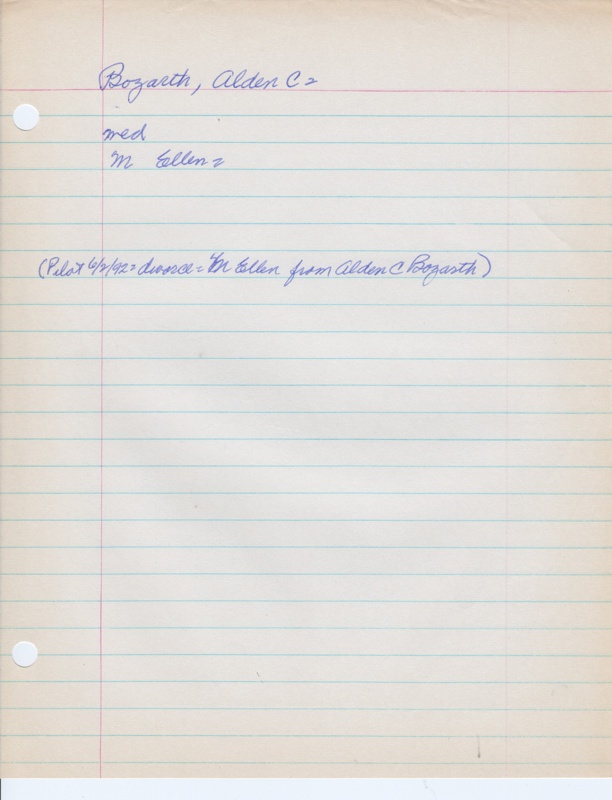 Bozarth, Alden C =
med
M Ellen =
(Pilot 6/2/92 = divorce = M Ellen from Alden C Bozarth)